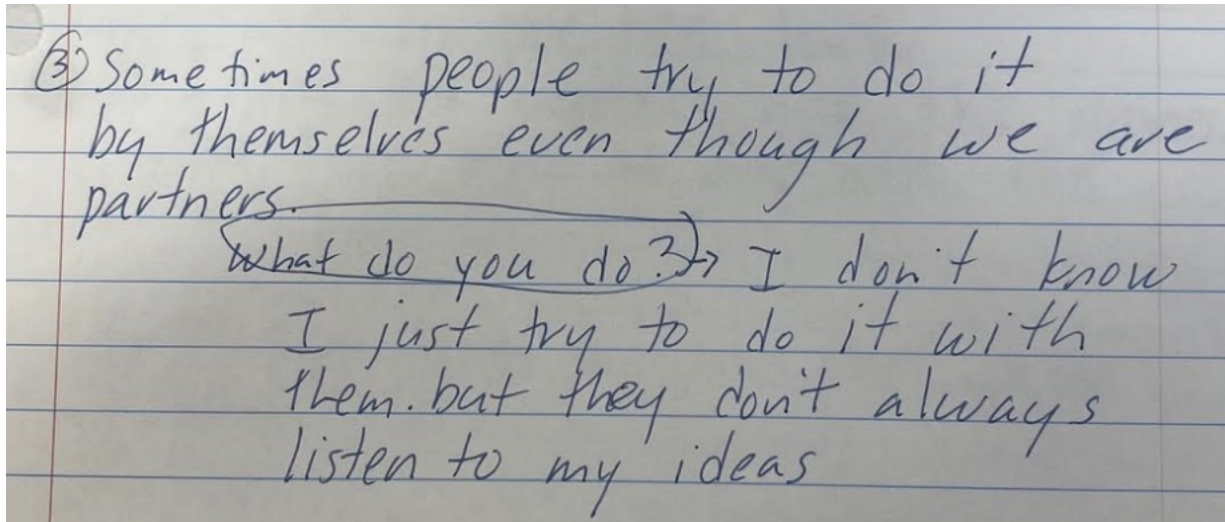 ③ Sometimes people try to do it
by themselves even though we are
partners.
What do you do? → I don't know
I just try to do it with
them. but they don't always
listen to my ideas